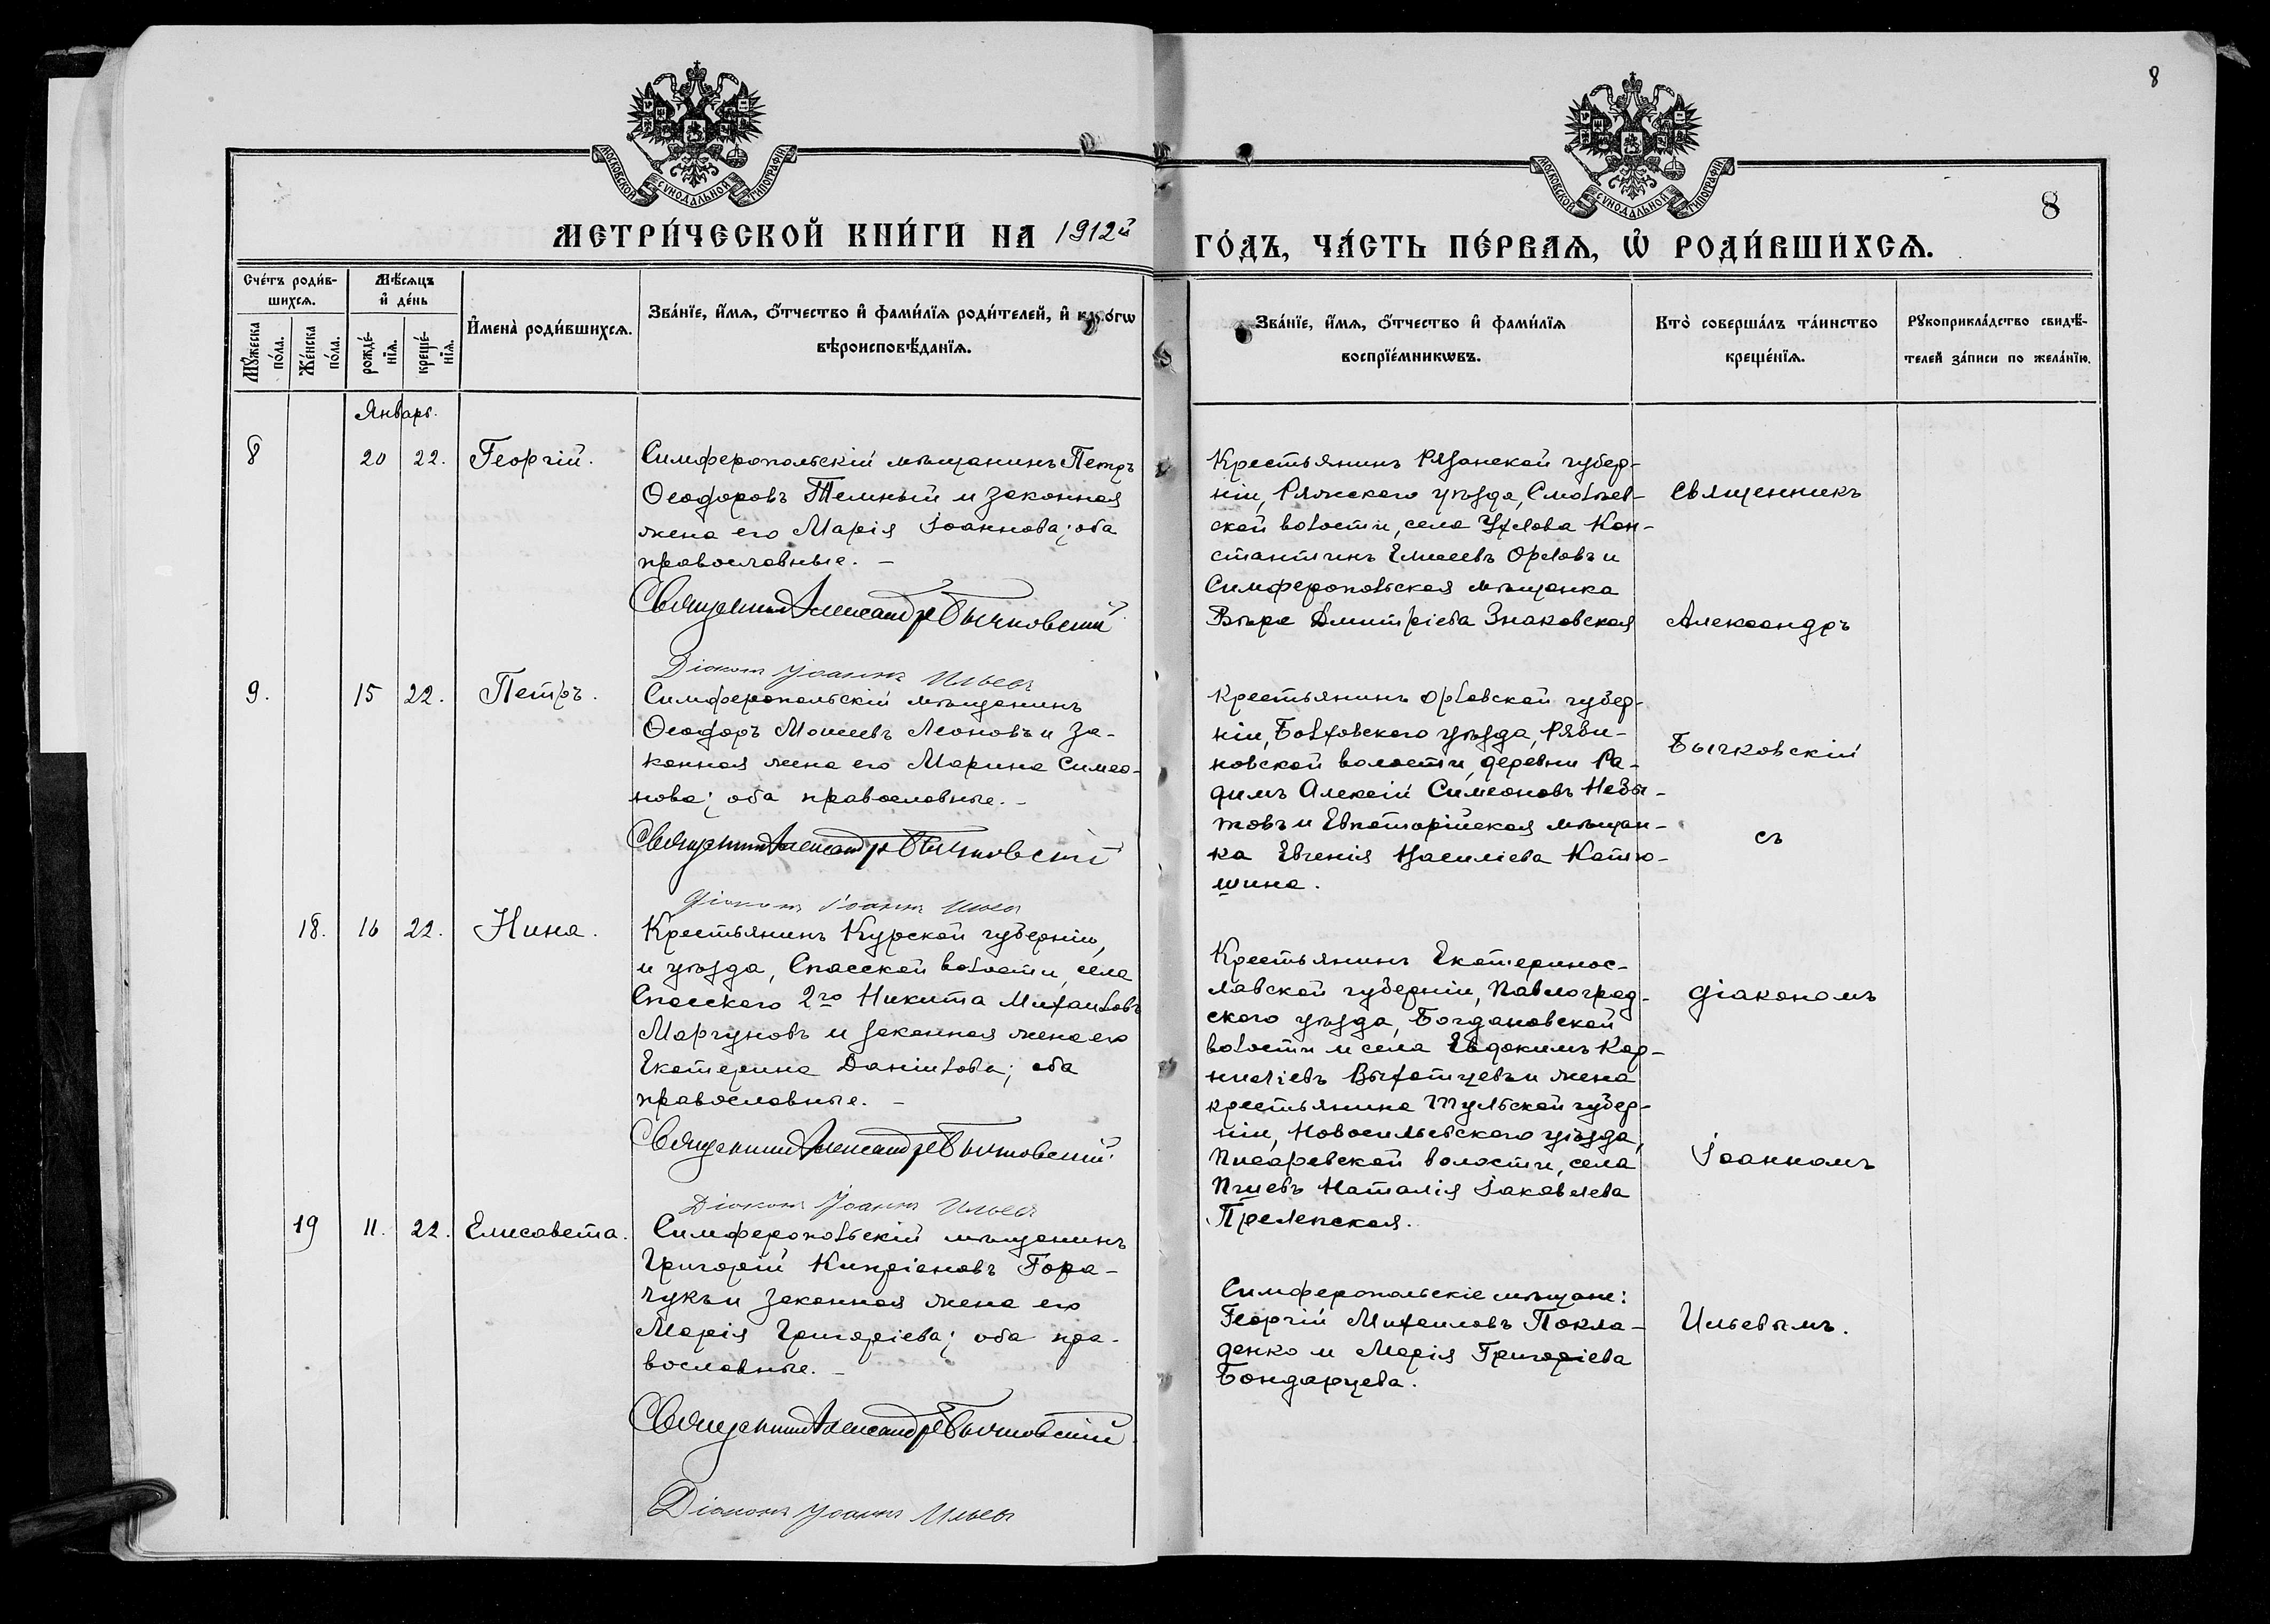 8
МОСКОВСКОЙ СѴНОДАЛЬНОЙ ТИПОГРАФІИ
МОСКОВСКОЙ СѴНОДАЛЬНОЙ ТИПОГРАФІИ
8
МЕТРИ́ЧЕСКОЙ КНИ́ГИ НА 1912й
ГО́ДЪ, ЧА́СТЬ ПЕ́РВАЯ, Ѡ҆ РОДИ́ВШИХСЯ.
Сче́тъ роди́в-
шихся.
Мѣ́сяцъ
и҆ де́нь
Мꙋ́жеска по́ла.
Же́нска по́ла.
рожде́-
нїя.
креще́-
нїя.
И҆мена̀ роди́вшихся.
Зва́нїе, и҆́мя, ѻ҆́тчество и҆ фами́лїя роди́телей, и҆ како́гѡ
вѣроисповѣ́данїя.
Зва́нїе, и҆́мя, ѻ҆́тчество и҆ фами́лїя
воспрїе́мникѡвъ.
Кто̀ соверша́лъ та́инство
креще́нїя.
Рꙋкоприкла́дство свидѣ́-
телей за́писи по жела́нїю.
Январь.
8 20 22. Георгій.
Симферопольскій мѣщанинъ Петръ
Ѳеодоровъ Темный и законная
жена его Марія Іоаннова; оба
православные. –
Священникъ Александръ Бычковскій
Діаконъ Іоаннъ Ильевъ
Крестьянинъ Рязанской губер-
ніи, Ряжского уѣзда,
ской волости, села Ухлова Кон-
стантинъ Елисеевъ Орловъ и
Симферопольская мѣщанка
Вѣра Дмитріева Знаковская
Священникъ
Александръ
9. 15 22. Петръ.
Симферопольскій мѣщанинъ
Ѳеодоръ Моисеевъ Леоновъ и за-
конная жена его Марина Симео-
нова; оба православные. –
Священникъ Александръ Бычковскій
Діаконъ Іоаннъ Ильевъ
Крестьянинъ Орловской губер-
ніи, Болховского уѣзда, Ряби-
новской волости, деревни Ра-
димъ Алексій Симеоновъ
товъ и Евпаторійская мѣщан-
ка Евгенія Василіева Катю-
шина.
Бычковскій
съ
18. 16 22. Нина.
Крестьянинъ Курской губерніи,
и уѣзда, Спасской волости, села
Спасского 2го Никита Михаиловъ
Моргуновъ и законная жена его
Екатерина Даніилова; оба
православные. –
Священникъ Александръ Бычковскій
Діаконъ Іоаннъ Ильевъ
Крестьянинъ Екатеринос-
лавской губерніи, Павлоград-
ского уѣзда, Богдановской
волости и села Евдокимъ Кор-
ниліевъ Выхотцевъ и жена
крестьянина Тульской губер-
ніи, Новосильского уѣзда,
Писаревской волости, села
Наталія Іаковлева
Прилепская.
діакономъ
Іоанномъ
19 11. 22. Елисавета.
Симферопольскій мѣщанинъ
Григорій Кипріановъ Гора-
чукъ и законная жена его
Марія Григоріева; оба пра-
вославные. –
Священникъ Александръ Бычковскій
Діаконъ Іоаннъ Ильевъ
Симферопольскіе мѣщане:
Георгій Михаиловъ Покла-
денко и Марія Григоріева
Бондарцева.
Ильевымъ.